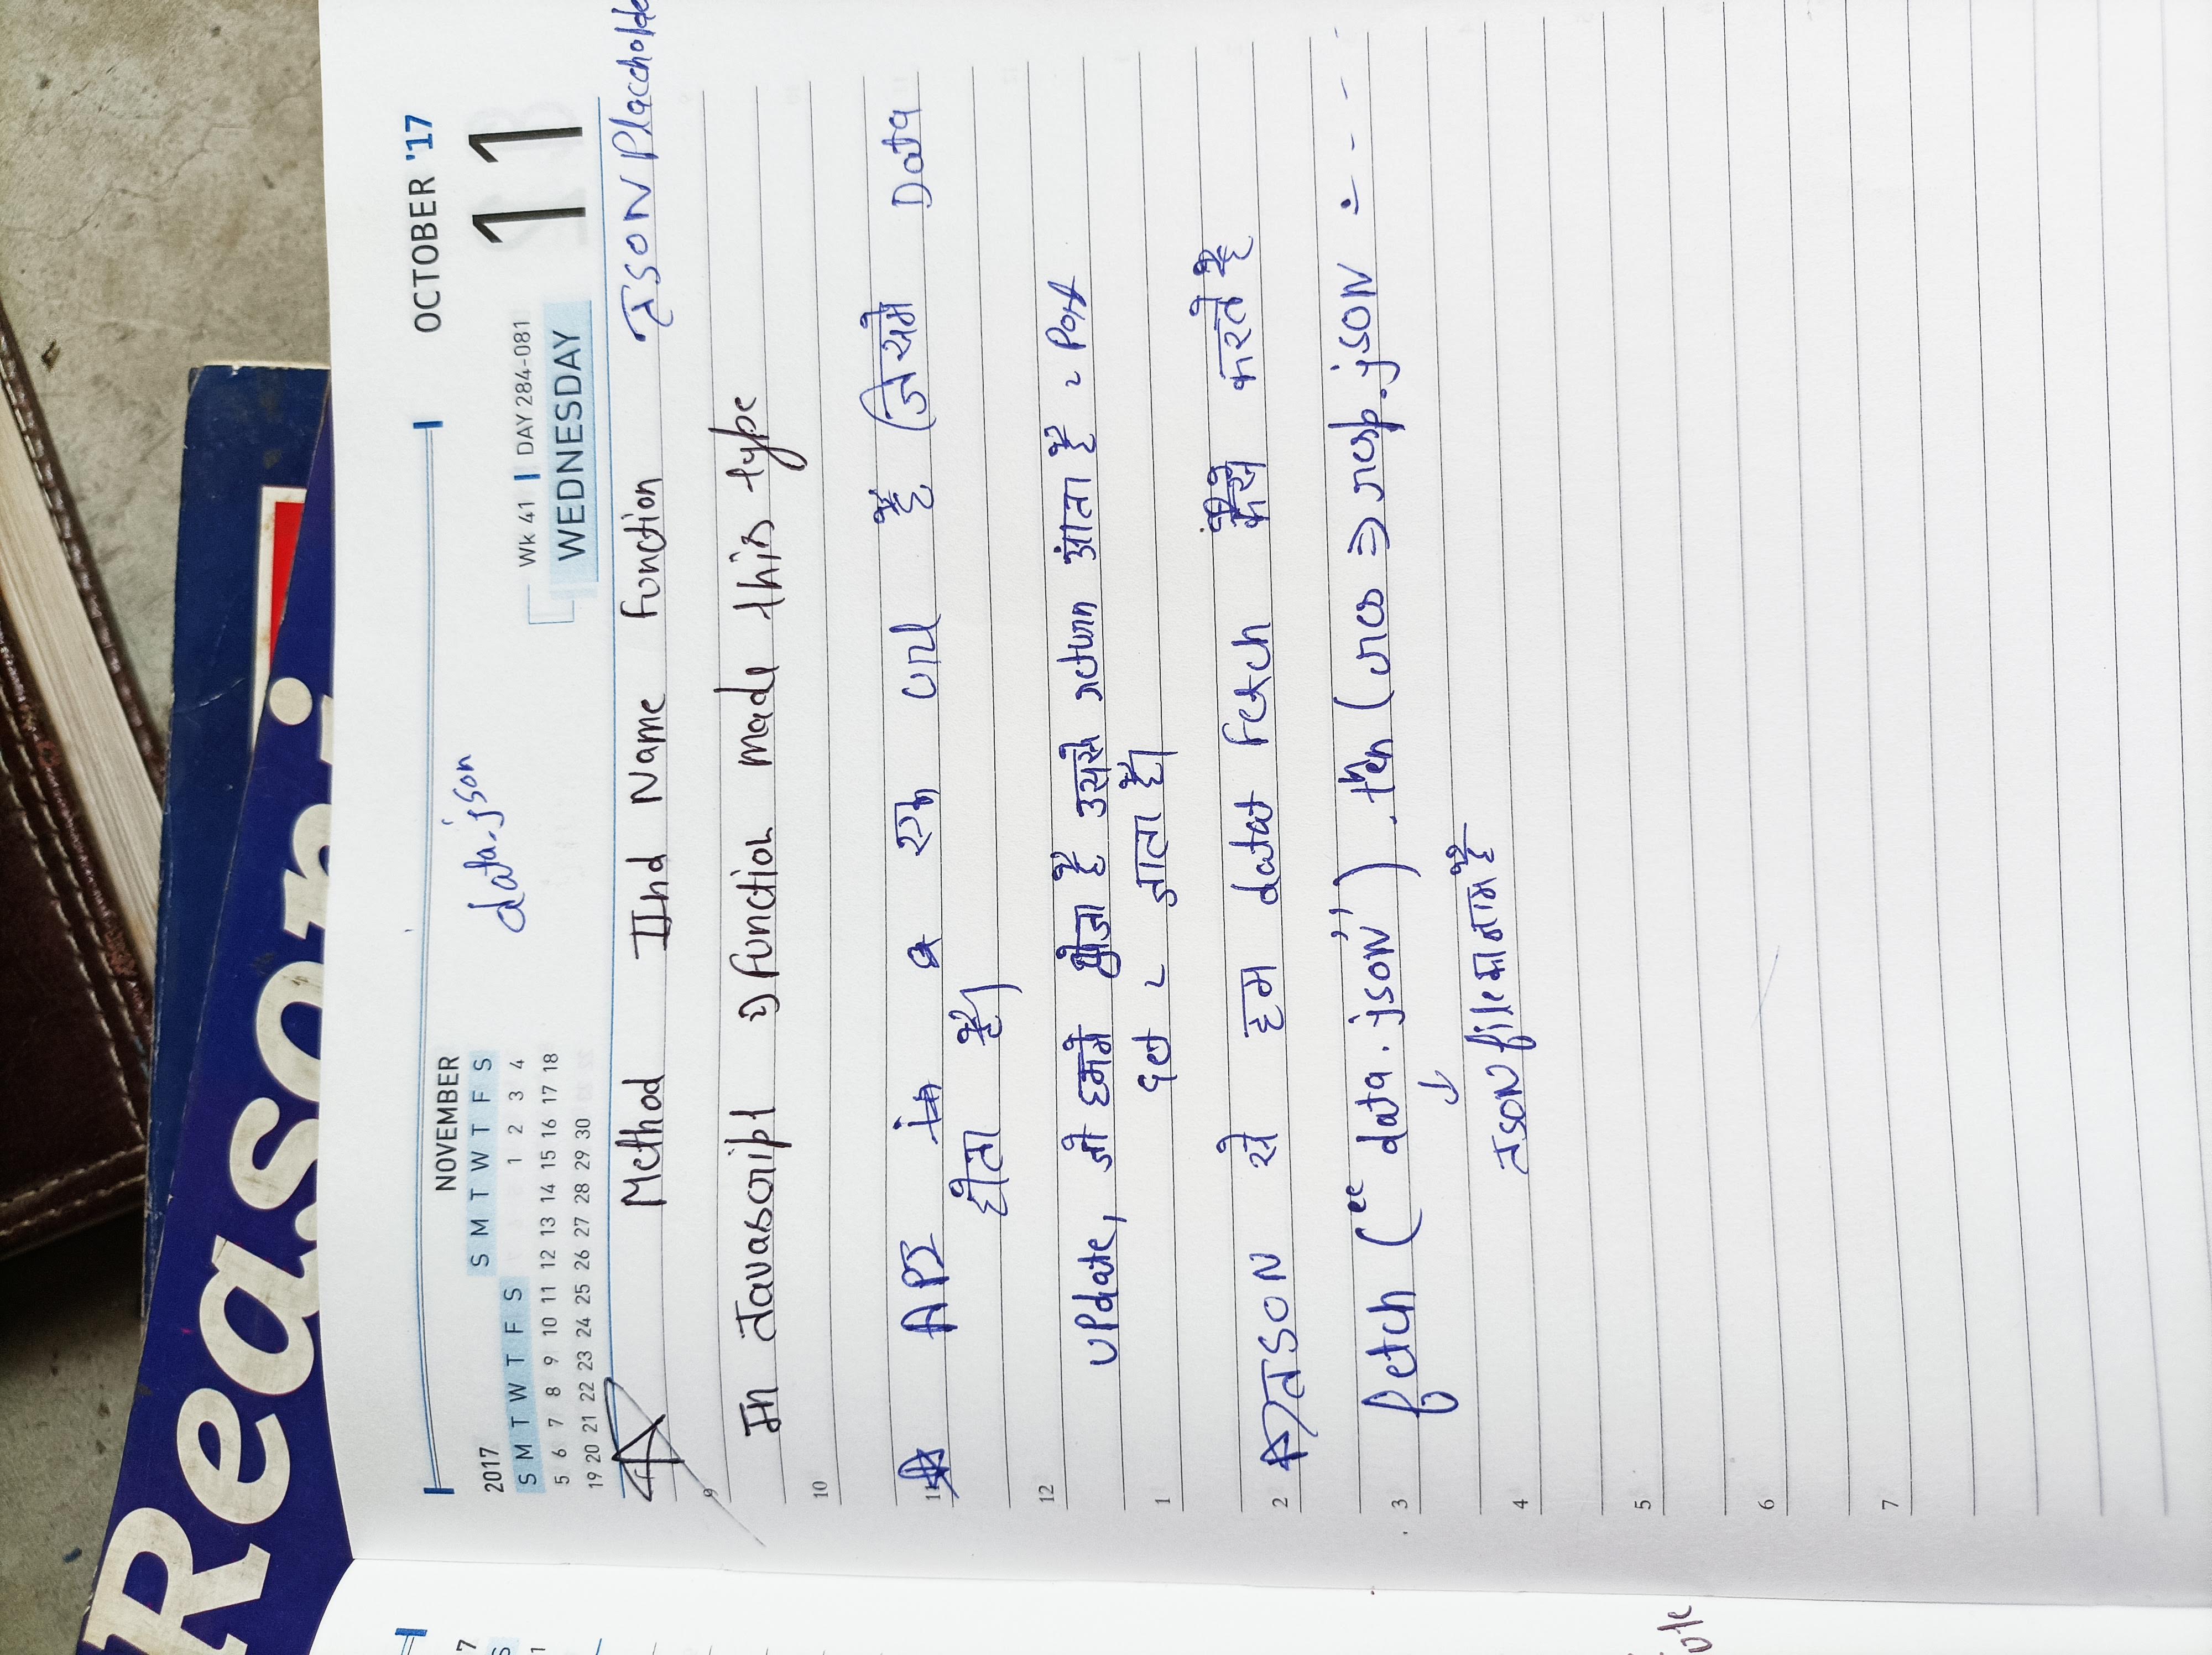 Reasoni
OCTOBER '17
NOVEMBER
2017 S M T W T F S
S M T W T F S 1 2 3 4
5 6 7 8 9 10 11 12 13 14 15 16 17 18
19 20 21 22 23 24 25 26 27 28 29 30
data.json
Wk 41 DAY 284-081
WEDNESDAY
11
Method IInd Name Function JSON Placeholde
In Javascript function made this type
9
10
11 API एक url है जिसमे Data
होता है।
12
Update, जो हमने भेजा है उससे return आता है Post
1 Get जाता है।
2 JSON से हम datat Fetch कैसे करते है
3 fetch ("data.json") .then (res => resp.json - - -
↓
JSON file का नाम है
4
5
6
7